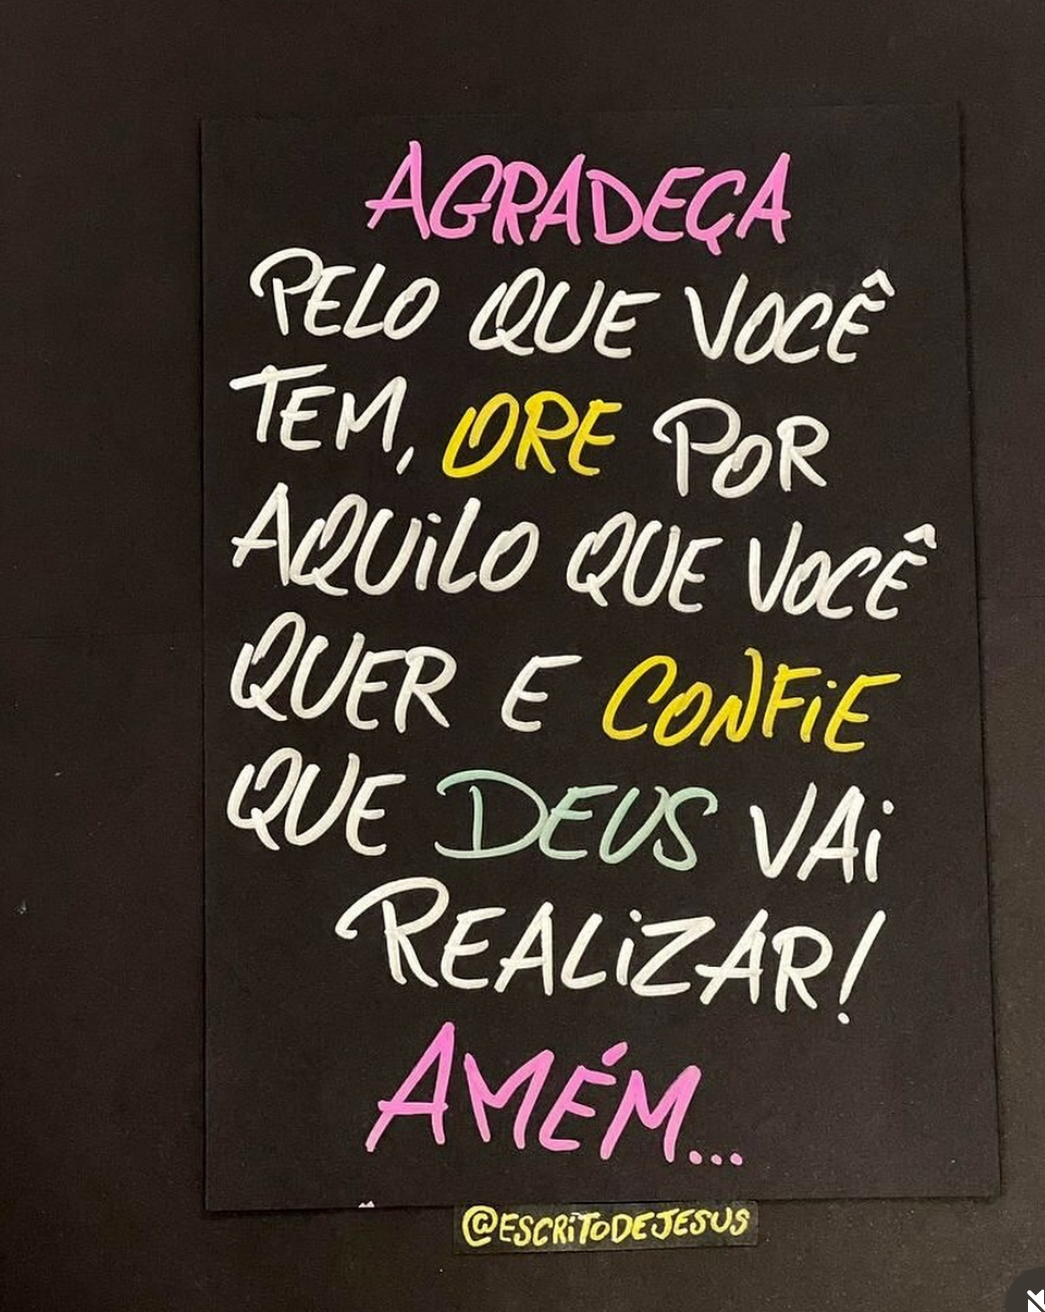 AGRADEÇA
PELO QUE VOCÊ
TEM, ORE POR
AQUiLO QUE VOCÊ
QUER E CONFiE
QUE DEUS VAi
REALiZAR!
AMÉM...
@ESCRiTODEJESUS